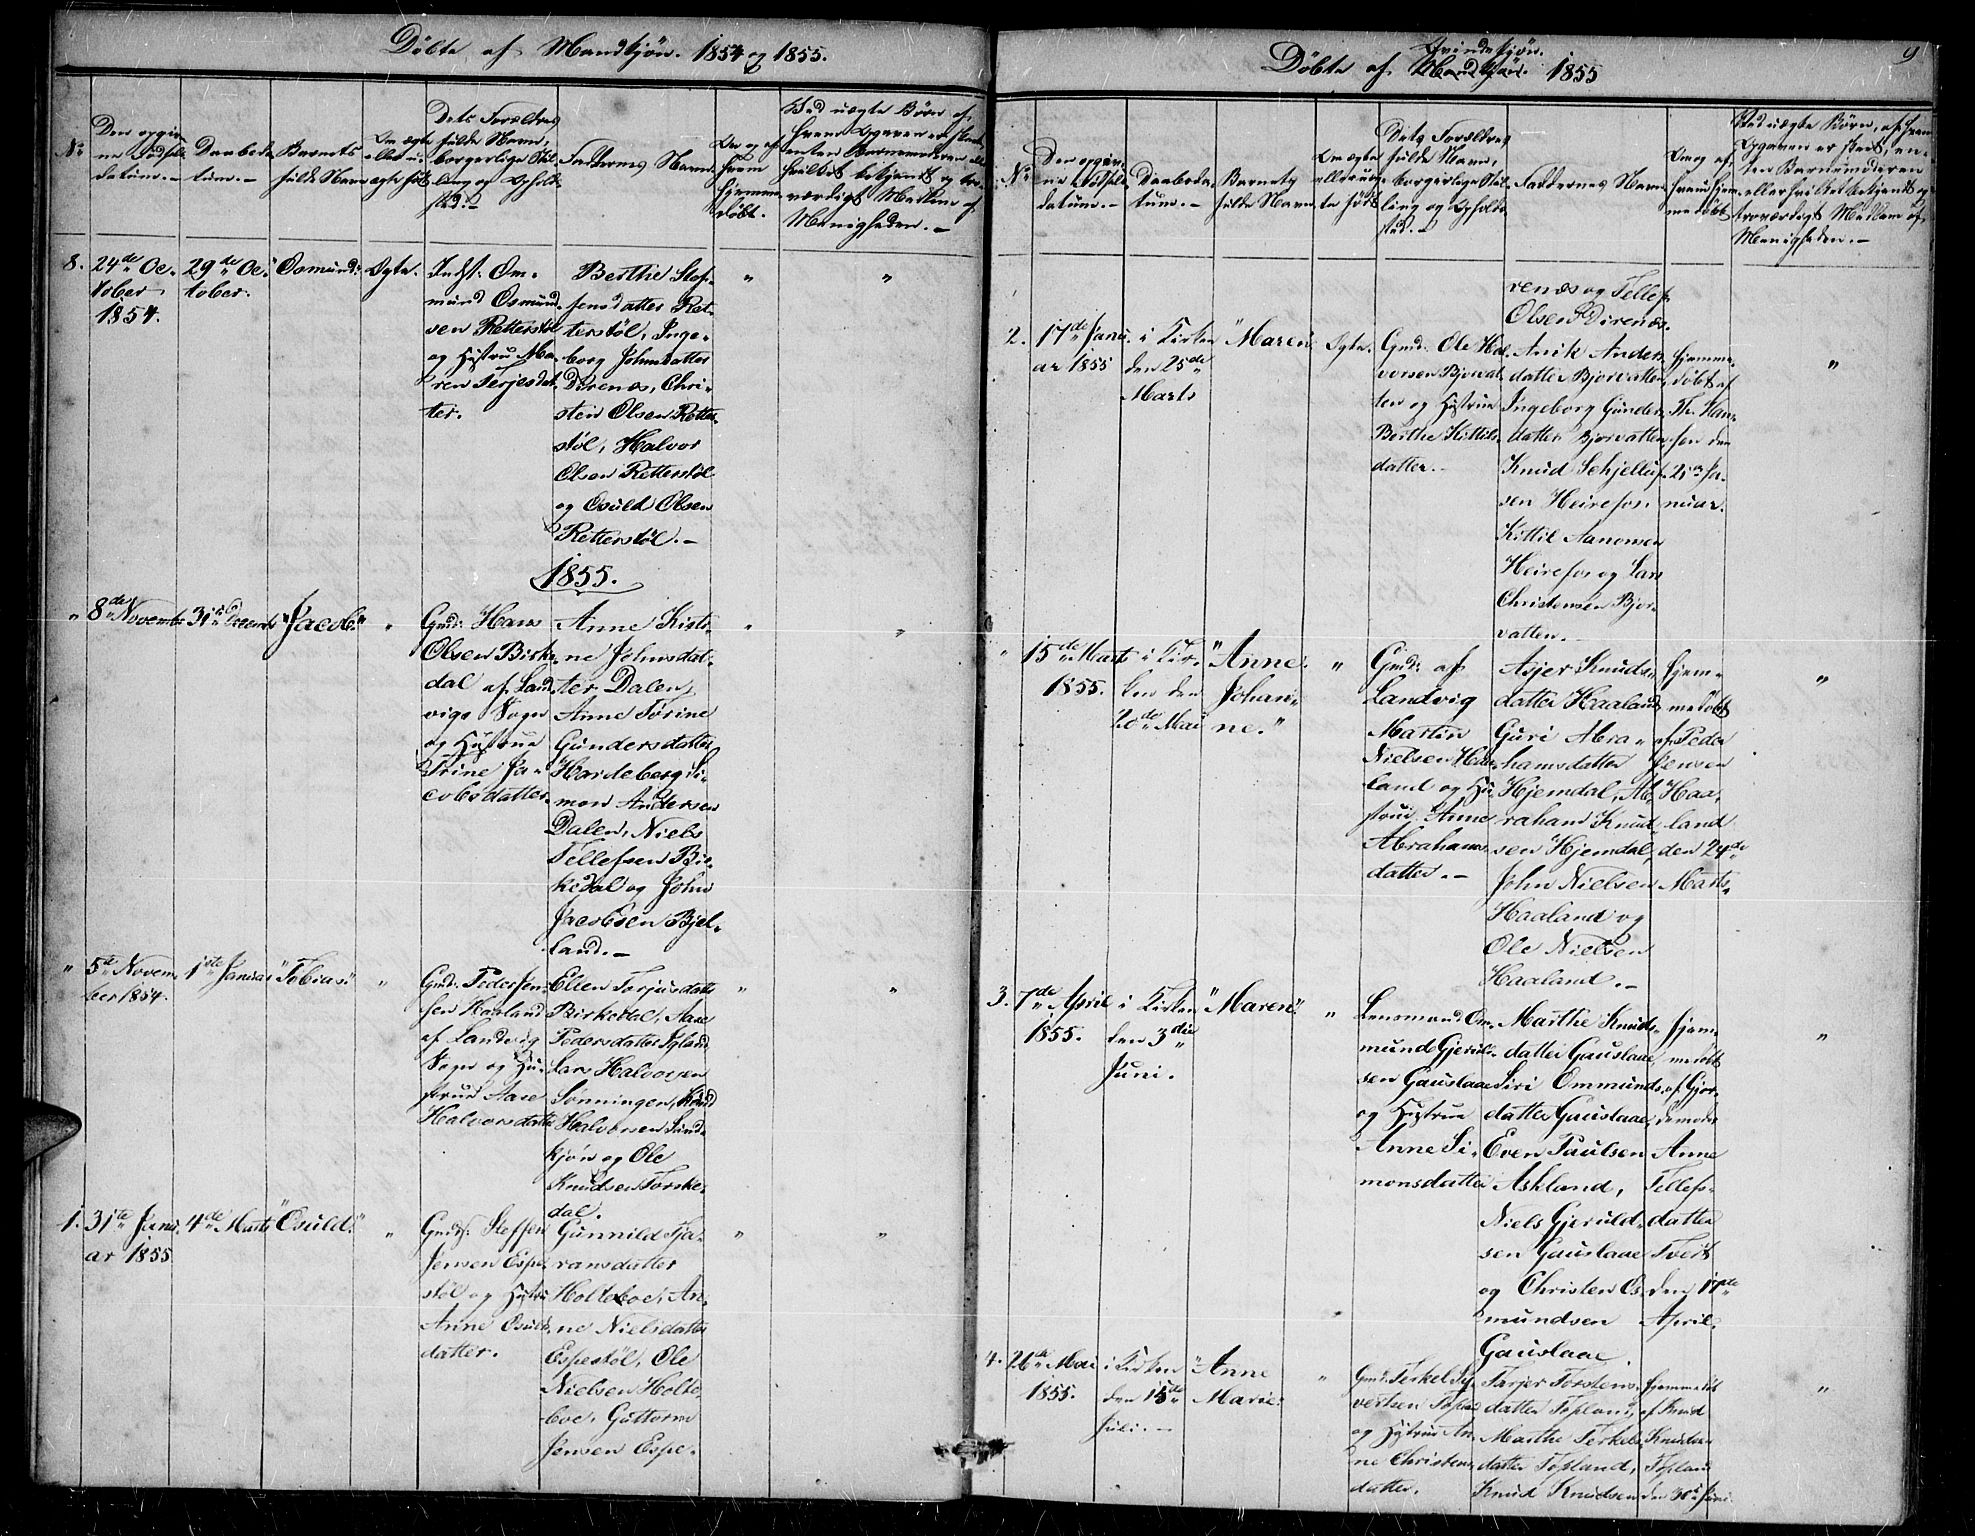 Döbte af Mandkjön. 1854 og 1855.
No
Den opgiv-
ne Födsels-
datum.-
Daabsda-
tum.-
Barnets
fulde Navn
Om ægte
eller u-
ægte født
Dets Forældres
fulde Navn,
borgerlige Stil-
ling og Opholds-
sted.-
Faddernes Navn
Om og af
hvem
hjemme-
döbt.
Ved uægte Börn, af
hvem Opgaven er skeet,
enten Barnemoderen eller
hvilket bekjendt og tro-
værdigt Medlem af
Menigheden.-
8.
24de Oc-
tober
1854.
29de Oc-
tober.
Osmund.
Ægte.
Indst: Om-
mund Osmund-
sen Retterstöl
og Hustru Ma-
ren Terjesdat-
ter.
Berthe Stef-
fensdatter Ret-
terstöl, Inge-
borg Johnsdatter
Direnæs, Chri-
sten Olsen Retter-
stöl, Halvor
Olsen Retterstöl
og Osuld Olsen
Retterstöl.-
"
"
1855.
"
8de Novembr
31te Decembr
"Jacob."
"
Gmd: Hans
Olsen Birke-
dal af Land-
vigs Sogn
og Hustrue
Trine Ja-
cobsdatter.
Anne Kisti-
ne Johnsdat-
ter Dalen,
Anne Torine
Gundersdatter
Hardeberg, Si-
mon Andersen
Dalen, Niels
Tellefsen Bir-
kedal og John
Jacobsen Bjel-
land.-
"
"
"
5te Novem-
ber 1854.
1ste Januar
"Tobias."
"
Gmd: Peder Jen-
sen Haaland
af Landvig
Sogn og Hu-
strue Aase
Halvorsdatter
Ellen Torjusdatter
Birkedal, Aase
Pedersdatter Igland,
Lars Halvorsen
Sönningen, Knud
Halvorsen Sand-
kjön og Ole
Knudsen Torske-
dal.
"
"
1.
31te Janu-
ar 1855
4de Marts
"Osuld."
"
Gmdf: Steffen
Jensen Espe-
stöl og Hustru
Anne Osulds-
datter.
Gunnild Tja-
ransdatter
Holteboe, An-
ne Nielsdatter
Espestöl, Ole
Nielsen Holte-
boe, Guttorm
Jensen Espe-
"
"
Qvindekjön.
Döbte af Mandkjön. 1855
9
No
Den opgiv-
ne Födsels-
datum.-
Daabsda-
tum.-
Barnets
fulde Navn
Om ægte
eller uæg-
te født
Dets Forældres
fulde Navn,
borgerlige Stil-
ling og Opholds-
sted.-
Faddernes Navn
Om og af
hvem hjem-
medöbt
Ved uægte Börn, af hvem
Opgaven er skeet, en-
ten Barnemoderen
eller hvilket bekjendt og
troværdigt Medlem af
Menigheden.-
renæs og Tellef
Olsen Direnæs.
2.
17de Janu-
ar 1855
i Kirken
den 25de
Marts
"Maren"
Ægte.
Gmd: Ole Hal-
vorsen Bjorvat-
ten og Hustrue
Berthe Kittils-
datter.-
Anik Anders-
datter Bjorvatten,
Ingeborg Gunders-
datter Bjorvatten,
Knud Schjelluf-
sen Heirefos,
Kittil Aanonsen
Heirefos og Lars
Christensen Bjor-
vatten.-
hjemme-
döbt af
Th. Han-
sen den
25de Ja-
nuar.
"
"
15de Marts
1855.
i Kir-
ken den
20de Mai
"Anne
Johan-
ne."
"
Gmd: af
Landvig
Martin
Nielsen Haa-
land og Hu-
strue Anne
Abrahams-
datter.-
Asjer Knuds-
datter Haaland,
Guri Abra-
hamsdatter
Hjemdal, Ab-
raham Knud-
sen Hjemdal,
John Nielsen
Haaland og
Ole Nielsen
Haaland.-
hjem-
medöbt
af Peder
Jensen
Haa-
land
den 24de
Marts.
"
3.
7de April
1855.
i Kirken
den 3die
Juni.
"Maren"
"
Lensmand Om-
mund Gjeruld-
sen Gauslaae
og Hustrue
Anne Si-
monsdatter
Marthe Knuds-
datter Gauslaae,
Siri Ommunds-
datter Gauslaae,
Even Paulsen
Askland,
Niels Gjeruld-
sen Gauslaae
og Christen Os-
mundsen
Gauslaae.
hjem-
medöbt
af Gjor-
demoder
Anne
Tellefs-
datter
Tveit
den 11te
April.
"
4.
26de Mai
1855.
i Kirken
den 15de
Juli.-
"Anne
Marie."
"
Gmd: Terkel Sy-
vertsen Topland
og Hustrue An-
ne Christens-
datter.
Tarjer Torstens-
datter Topland,
Marthe Terkels-
datter Topland,
Knud Knudsen
hjemmedöbt
af Knud
Knudsen
Topland
den 30te Juni
"